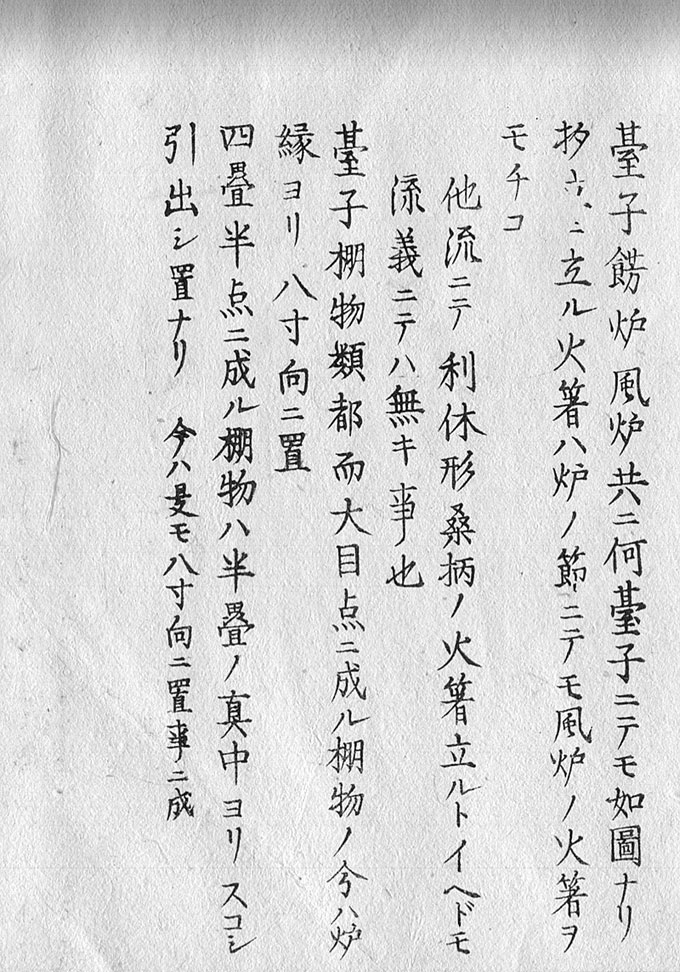 臺子餝炉風炉共ニ何臺子ニテモ如圖ナリ
ニ立ル火箸ハ炉ノ節ニテモ風炉ノ火箸ヲ
モチコ
他流ニテ利休形桑柄ノ火箸立ルトイヘドモ
流義ニテハ無キ事也
臺子棚物類都而大目点ニ成ル棚物ノ分ハ炉
縁ヨリ八寸向ニ置
四畳半点ニ成ル棚物ハ半畳ノ真中ヨリスコシ
引出シ置ナリ 今ハ是モ八寸向ニ置事ニ成